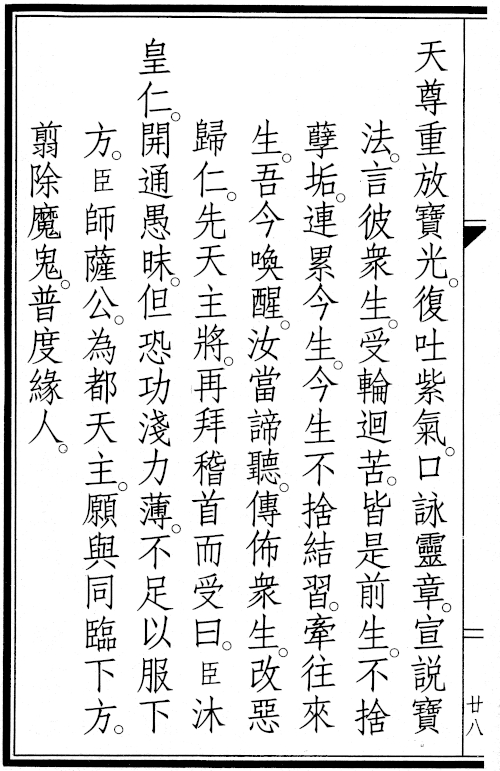 天尊重放寶光。復吐紫氣。口詠靈章。宣説寶
法。言彼衆生。受輪迴苦。皆是前生。不捨
孽垢。連累今生。今生不捨結習。牽往來
生。吾今喚醒。汝當諦聽。傳佈衆生。改惡
歸仁。先天主將。再拜稽首而受曰。臣沐
皇仁。開通愚昧。但恐功淺力薄。不足以服下
方。臣師薩公。為都天主。願與同臨下方。
翦除魔鬼。普度緣人。
廿八